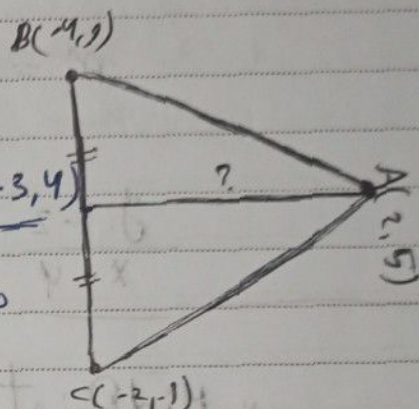 B(-4,9)
?
-3,4)
A(2,5)
C(-2,-1)